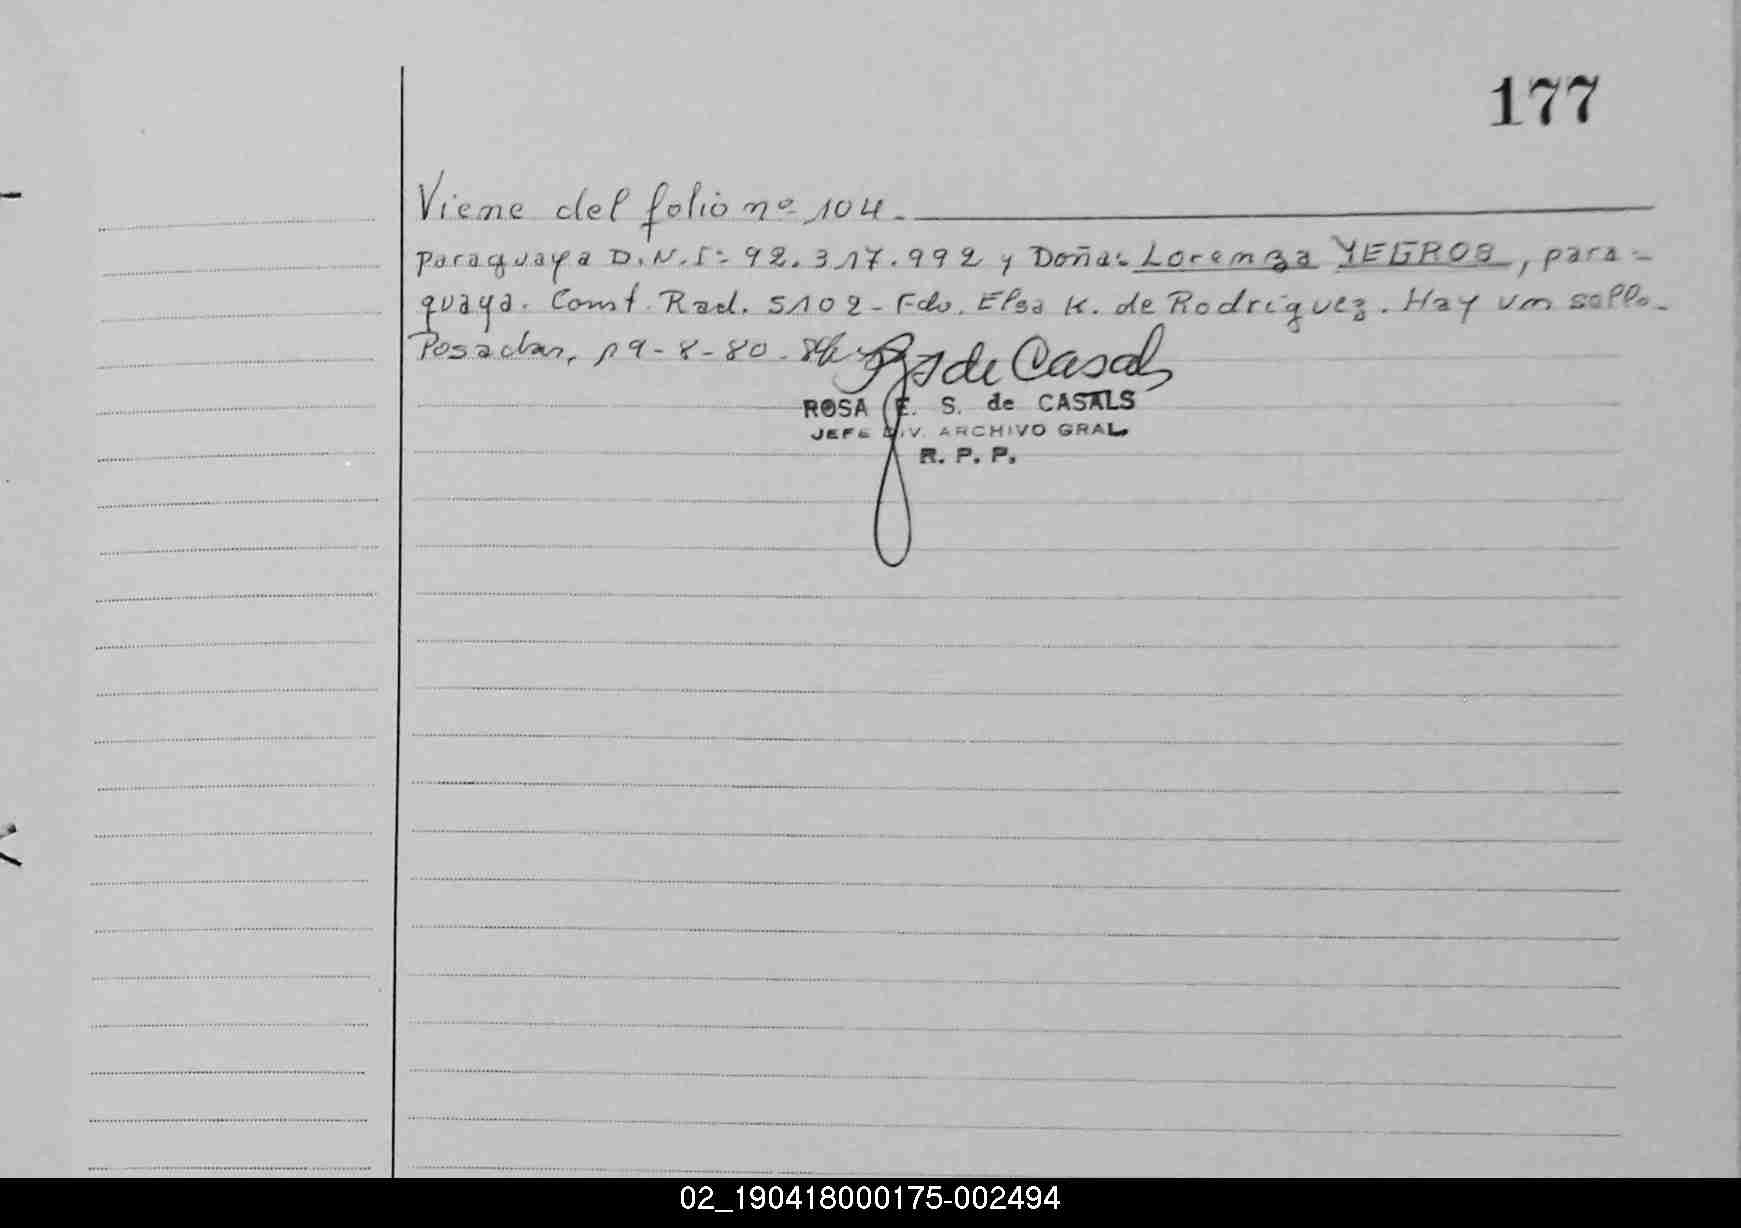 177
Viene del folio nº 104.
paraguaya D.N.I: 92.317.992 y Doña: Lorenza YEGROS, para-
guaya. Const. Rad. 5102 - Fdo. Elsa K. de Rodríguez. Hay un sello.
Posadas, 19-8-80.
de Casals
ROSA E. S. de CASALS
JEFE DIV. ARCHIVO GRAL.
R. P. P.
02_190418000175-002494